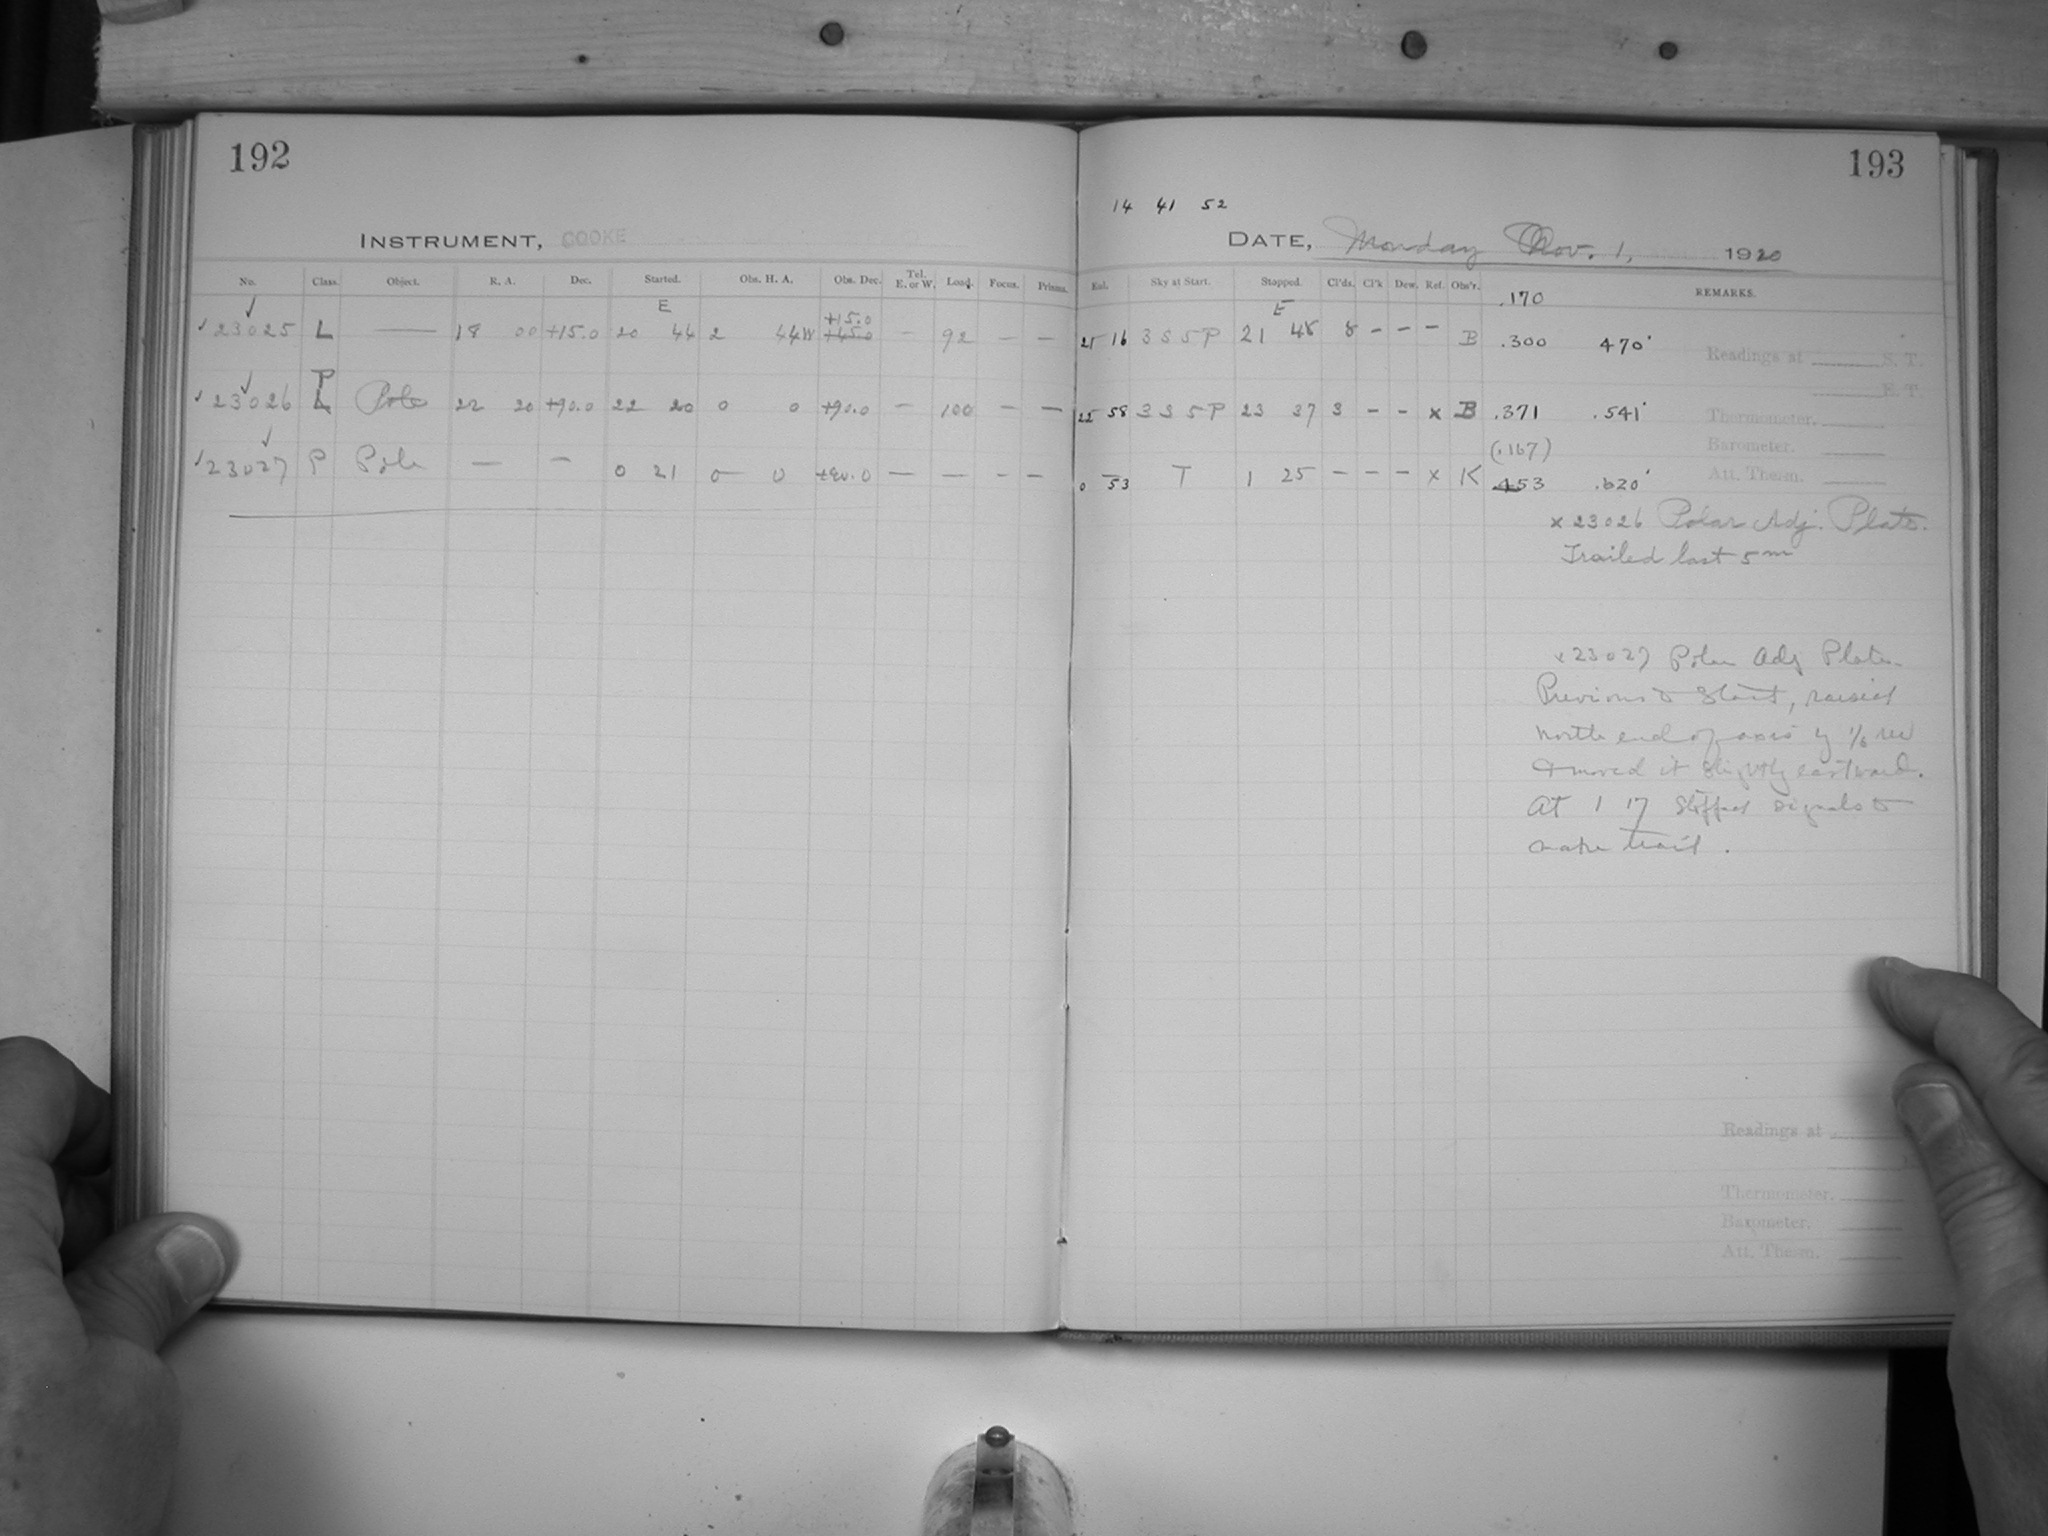 192
INSTRUMENT, COOKE
No. Class. Object. R. A. Dec. Started. Obs. H. A. Obs. Dec. Tel. E. or W. Load. Focus. Prisms.
E
+15.0
✓ 23025 L — 18 00 +15.0 20 44 2 44W +45.0 — 92 — —
P
✓ 23026 L Pole 22 20 +90.0 22 20 0 0 +90.0 — 100 — —
✓ 23027 P Pole — — 0 21 0 0 +90.0 — — — —
193
14 41 52
DATE, Monday Nov. 1, 1920
Exd. Sky at Start. Stopped. Cl'ds. Cl'k Dew. Ref. Obs'r. REMARKS.
E .170
21 16 3 S 5 P 21 48 8 – – – B .300 470'
Readings at S. T.
E. T.
22 58 3 S 5 P 23 37 3 – – x B .371 .541'
Thermometer.
(.167)
Barometer.
0 53 T 1 25 – – – x K .453 .620'
Att. Therm.
x 23026 Polar Adj. Plate.
Trailed last 5m
x 23027 Polar Adj Plate
Previous to start, raised
north end of axis by 1/6 rev
& moved it slightly eastward.
At 1 17 stopped signals to
make trail.
Readings at
Thermometer.
Barometer.
Att. Therm.